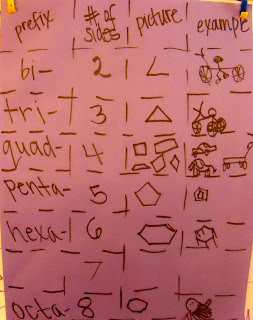 prefix # of sides picture example
bi- 2
tri- 3
quad- 4
penta- 5
hexa- 6
7
octa- 8